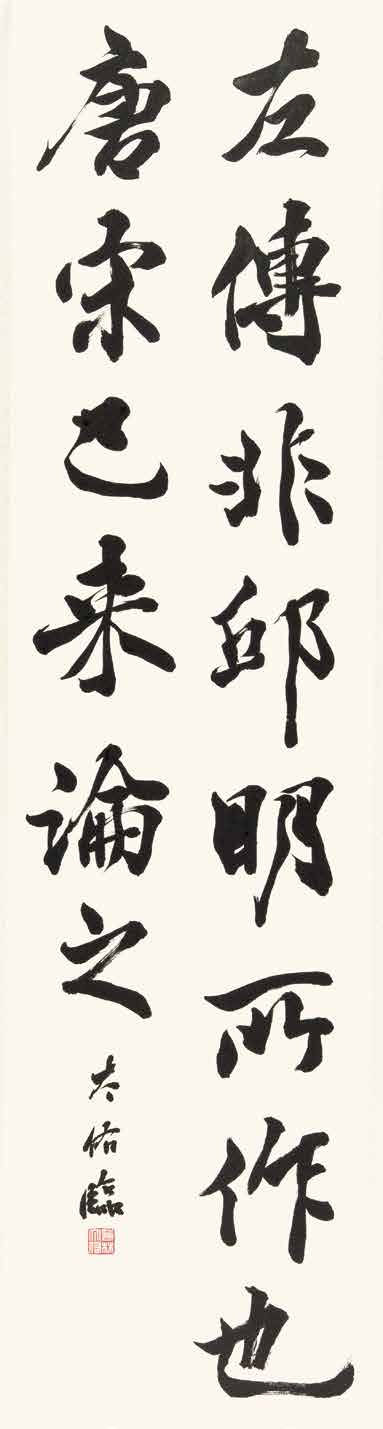 左傳非邱明所作也
唐宋已来論之
太佑臨